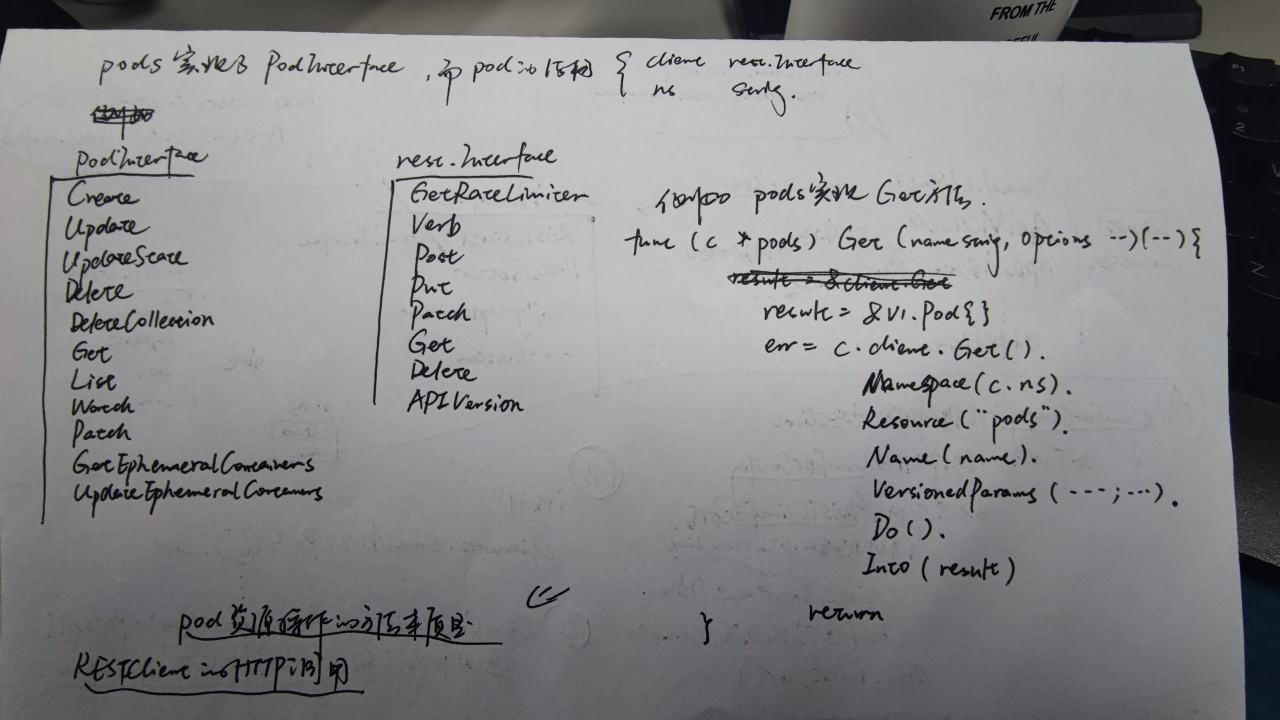 FROM THE
pods实现了 PodInterface ,而 pod的结构 { client rest.Interface
ns string.
PodInterface
Create
Update
UpdateState
Delete
DeleteCollection
Get
List
Watch
Patch
GetEphemeralContainers
UpdateEphemeralContainers
rest.Interface
GetRateLimiter
Verb
Post
Put
Patch
Get
Delete
APIVersion
例如 pods实现 Get方法.
func (c *pods) Get (name string, options --)(--){
result = &client.Get
result = &v1.Pod{}
err = c.client.Get().
Namespace(c.ns).
Resource("pods").
Name(name).
VersionedParams(---;---).
Do().
Into(result)
return
}
pod资源操作的方法本质是
RESTClient的HTTP调用